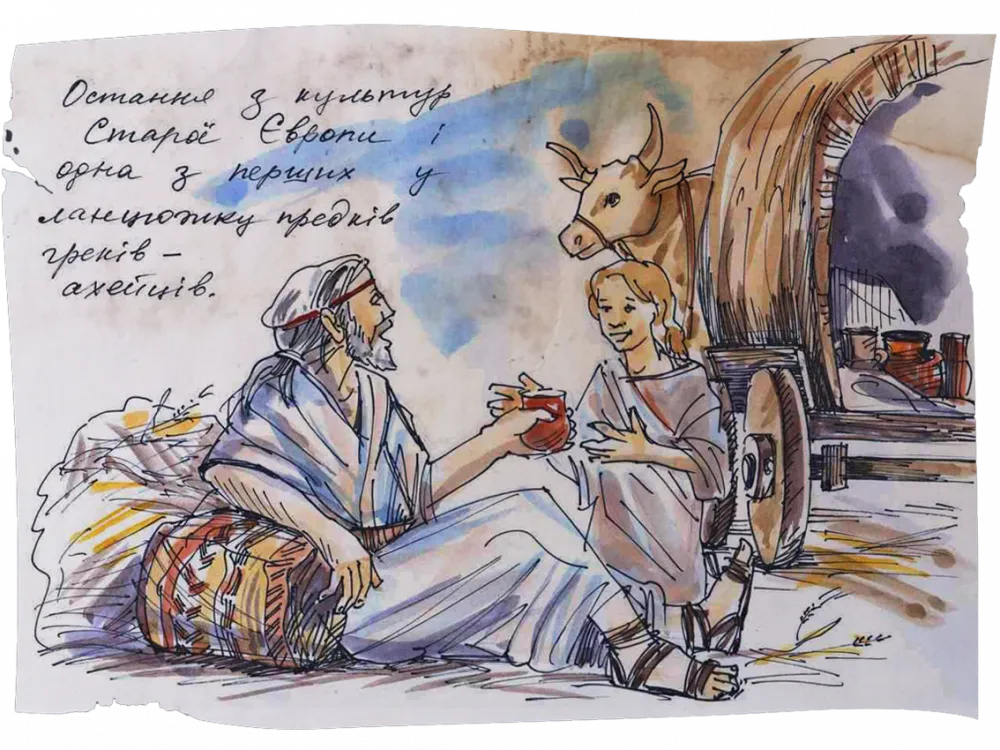 Остання з культур
Старої Європи і
одна з перших у
ланцюжку предків
греків –
ахейців.